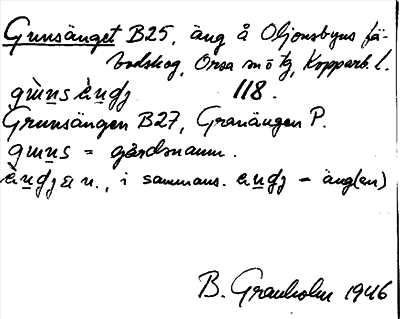 Grunsänget B25, äng å Oljonsbyns fä-
bodskog, Orsa sn ö tg, Kopparb. l.
118.
Grunsängen B27, Granängen P.
= gårdsnamn.
i sammans. - äng(en)
B. Granholm 1946